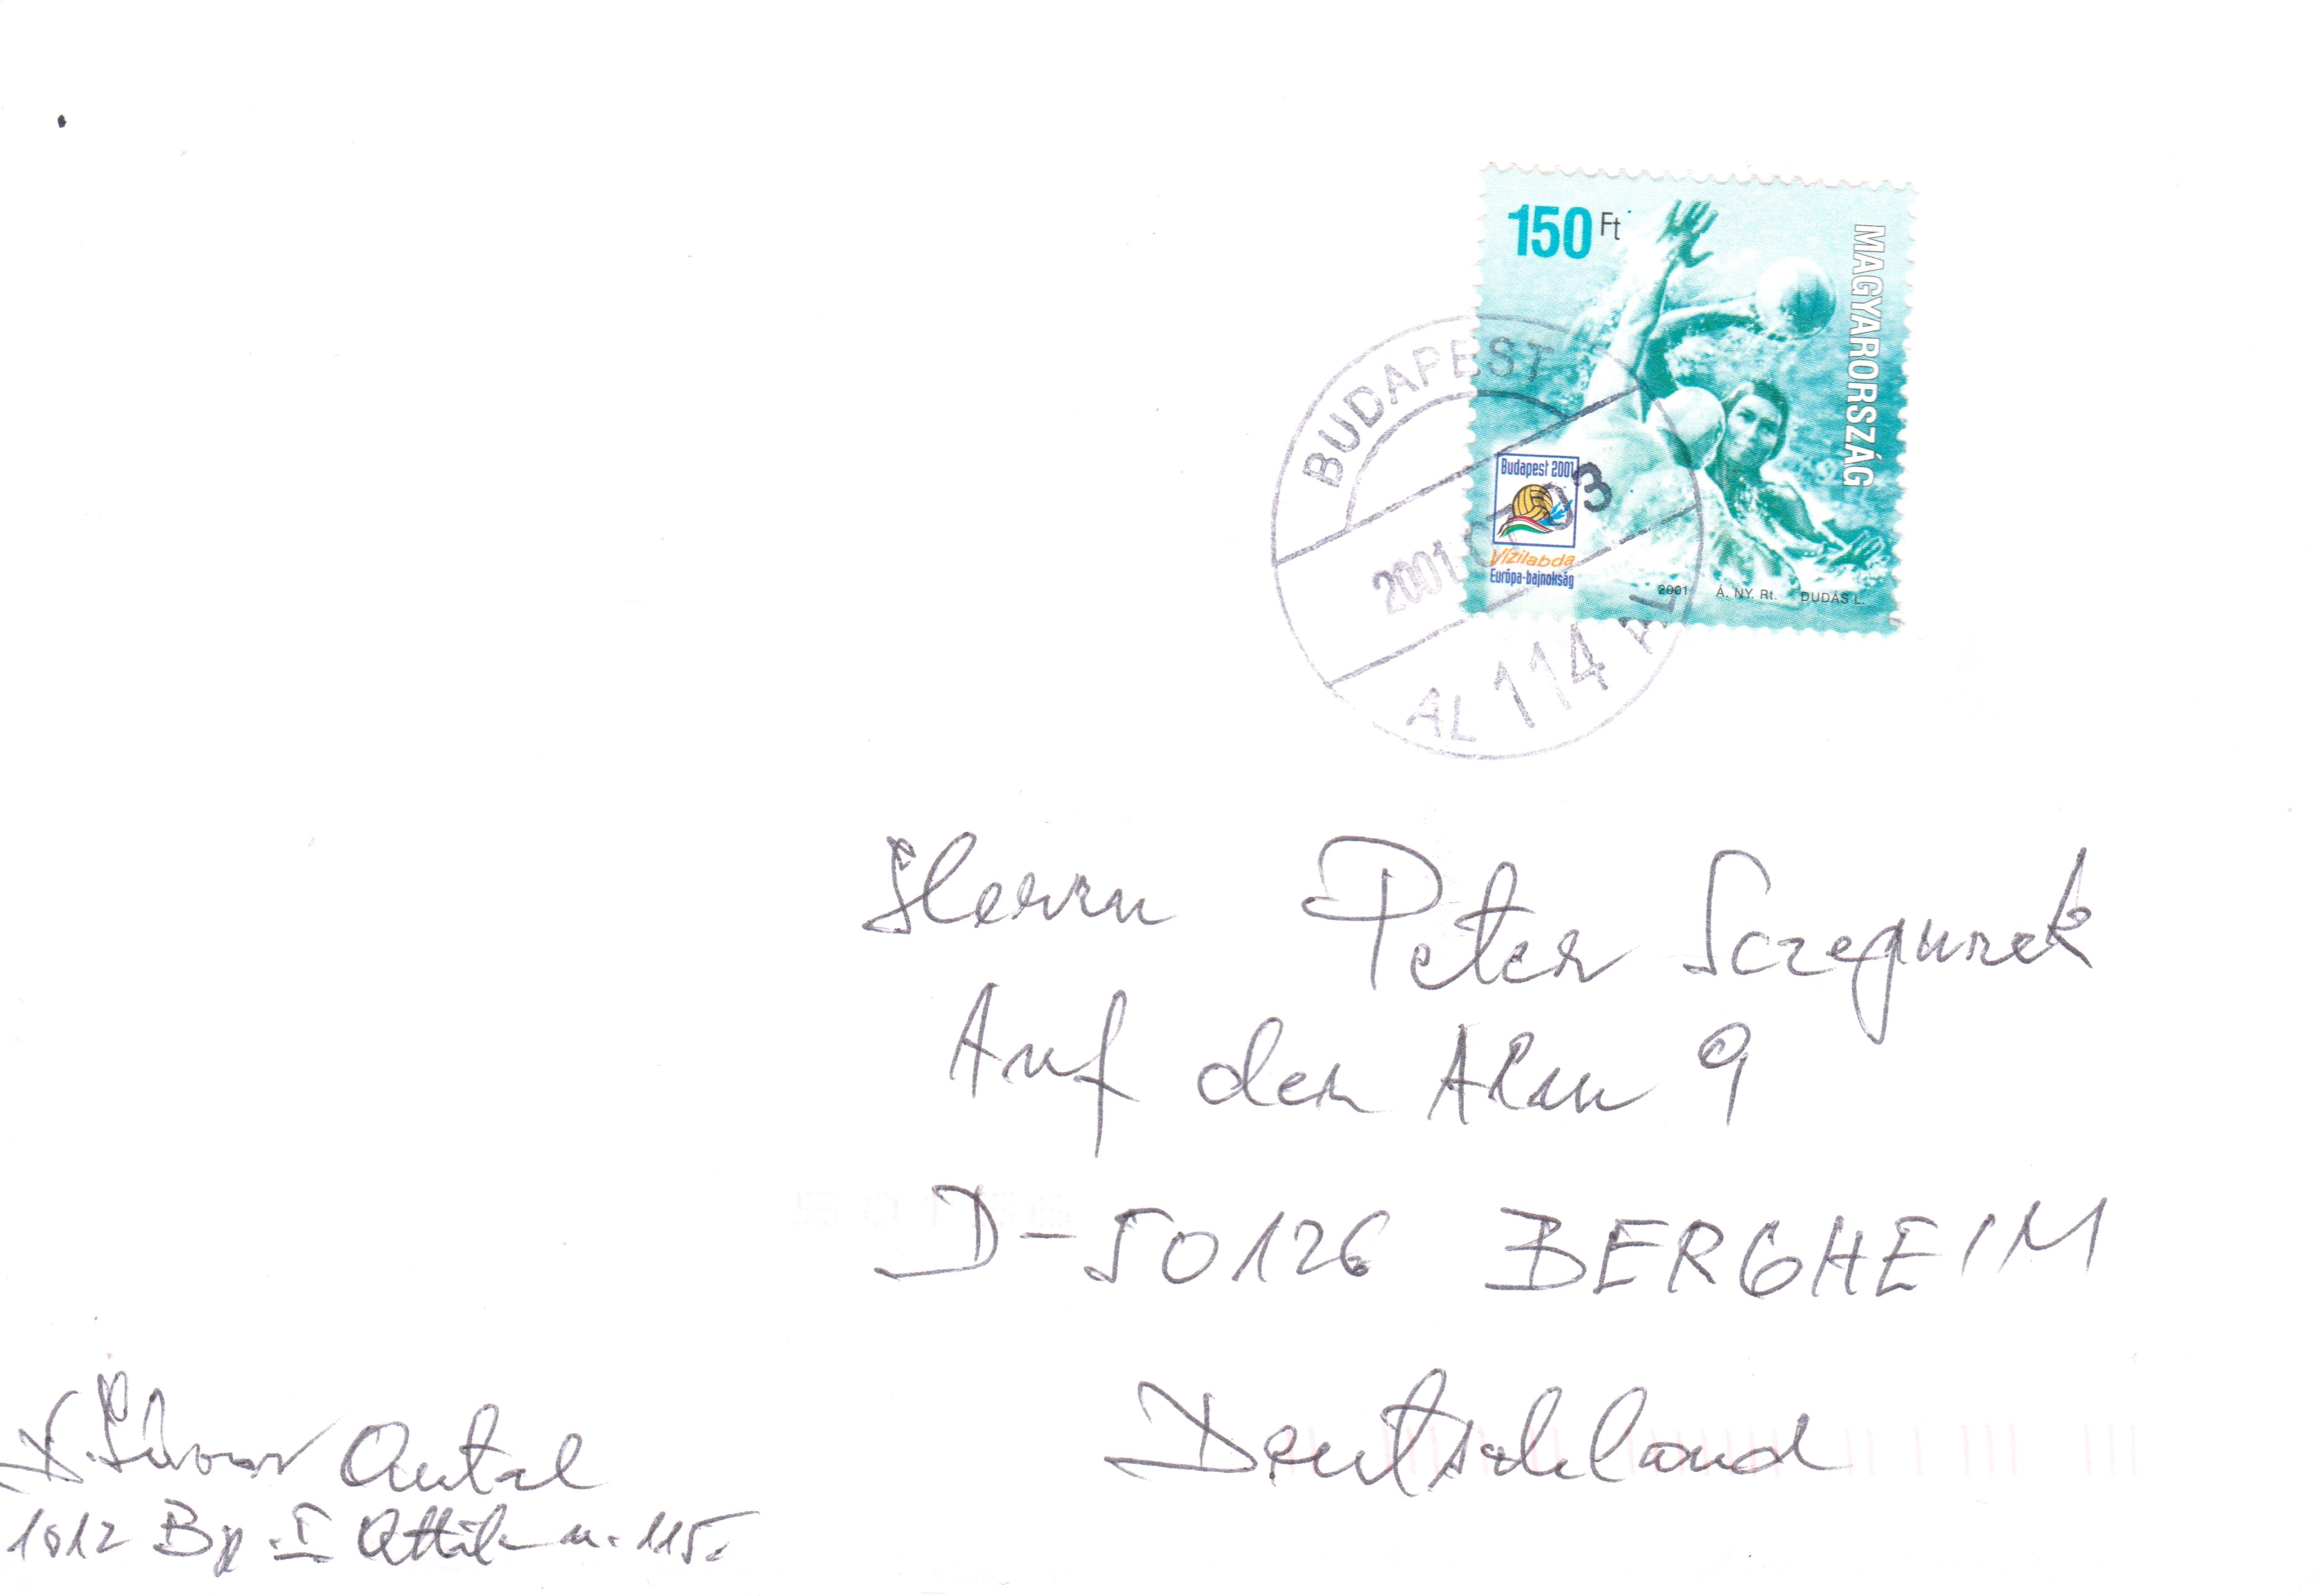 150 Ft
MAGYARORSZÁG
Budapest 2001
Vízilabda
Európa-bajnokság
2001 Á. NY. Rt. DUDÁS L.
BUDAPEST
2001 03
ÁL 114 ÁL
Herrn Peter Sczegunek
Auf der Alm 9
D-50126 BERGHEIM
Deutschland
Antal
1012 Bp. I Attila u. 115.